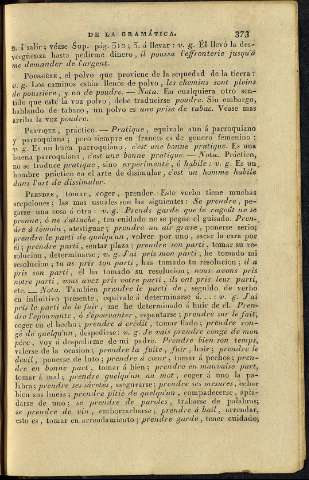 DE LA GRAMÁTICA. 373
á salir; véase Sup. pág. 510; 3. á llevar: v. g. El llevó la des-
vergüenza hasta pedirme dinero, il poussa l'effronterie jusqu'à
me demander de l'argent.
POUSSIERE, el polvo que proviene de la sequedad de la tierra:
v. g. Los caminos estan llenos de polvo, les chemins sont pleins
de poussiere, y no de poudre. — Nota. En cualquiera otro sen-
tido que esté la voz polvo, debe traducirse poudre. Sin embargo,
hablando de tabaco, un polvo es une prise de tabac. Véase mas
arriba la voz poudre.
PRATIQUE, práctico. — Pratique, equivale aun á parroquiano
y parroquiana; pero siempre en frances es de género femenino;
v. g. Es un buen parroquiano, c'est une bonne pratique. Es una
buena parroquiana, c'est une bonne pratique. — Nota. Práctico,
no se traduce pratique, sino expérimenté, ó habile: v. g. Es un
hombre práctico en el arte de disimular, c'est un homme habile
dans l'art de dissimuler.
PRENDRE, tomar, coger, prender. Este verbo tiene muchas
acepciones; las mas usuales son las siguientes: Se prendre, pe-
garse una cosa á otra: v. g. Prends garde que le ragoût ne se
prenne, ó ne s'attache, ten cuidado no se pegue el guisado. Pren-
dre à témoin, atestiguar; prendre un air grave, ponerse serio;
prendre le parti de quelqu'un, volver por uno, sacar la cara por
él; prendre parti, sentar plaza; prendre son parti, tomar su re-
solucion, determinarse; v. g. J'ai pris mon parti, he tomado mi
resolucion; tu as pris ton parti, has tomado tu resolucion; il a
pris son parti, él ha tomado su resolucion; nous avons pris
notre parti, vous avez pris votre parti, ils ont pris leur parti,
etc. — Nota. Tambien prendre le parti de, seguido de verbo
en infinitivo presente, equivale á determinarse á... : v. g. J'ai
pris le parti de le fuir, me he determinado á huir de él. Pren-
dre l'épouvante, ó s'épouvanter, espantarse; prendre sur le fait,
coger en el hecho; prendre à crédit, tomar fiado; prendre con-
gé de quelqu'un, despedirse: v. g. Je vais prendre congé de mon
père, voy á despedirme de mi padre. Prendre bien son temps,
valerse de la ocasion; prendre la fuite, fuir, huir; prendre le
deuil, ponerse de luto; prendre à cœur, tomar á pechos; pren-
dre en bonne part, tomar á bien; prendre en mauvaise part,
tomar á mal; prendre quelqu'un au mot, coger á uno la pa-
labra; prendre ses sûretés, asegurarse; prendre ses mesures, echar
bien sus lineas; prendre pitié de quelqu'un, compadecerse, api-
adarse de uno; se prendre de paroles, trabarse de palabras;
se prendre de vin, emborracharse; prendre à bail, arrendar,
esto es, tomar en arrendamiento; prendre garde, tener cuidado;